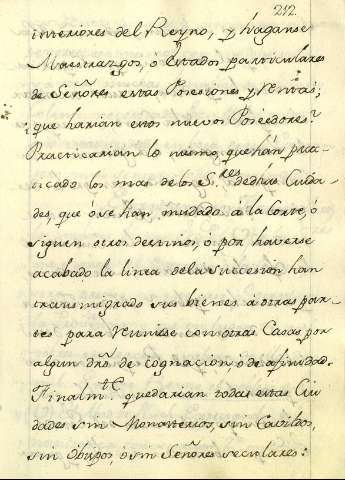 212.
interiores del Reyno, y haganse
Maestrazgos, ò Estados particulares
de Señores estas Posesiones y rentas;
que harian estos nuevos Poseedores?
Practicarian lo mismo, que hàn prac-
ticado los mas de los S.res de dhas Ciuda-
des, que ò se han mudado à la Corte, ò
siguen otros destinos, ò por haverse
acabado la linea de la succesion han
transmigrado sus bienes à otras par-
tes para reunirse con otras Casas por
algun dro de cognacion, ò de afinidad.
Finalm.te quedarian todas estas Ciu
dades sin Monasterios, sin Cavildos,
sin Obispos, ò sin Señores seculares: